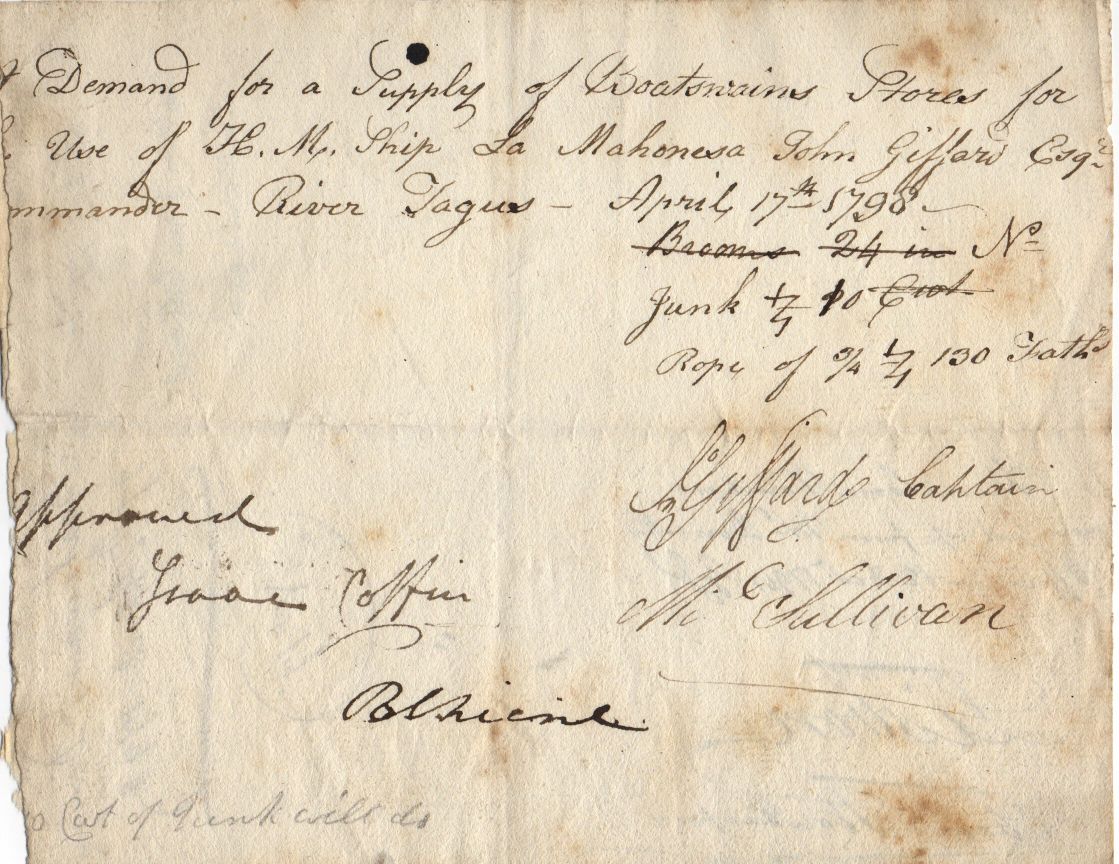 A Demand for a Supply of Boatswains Stores for
Use of H. M. Ship La Mahonesa John Giffard Esqr.
mmander – River Tagus – April 17th 1798 –
Brooms 24 in No
Junk 10 Cwt
Rope of 3/4 130 Faths
Jno Giffard Captain
Approved
Isaac Coffin
Ml Sullivan
10 Cwt of Junk will do